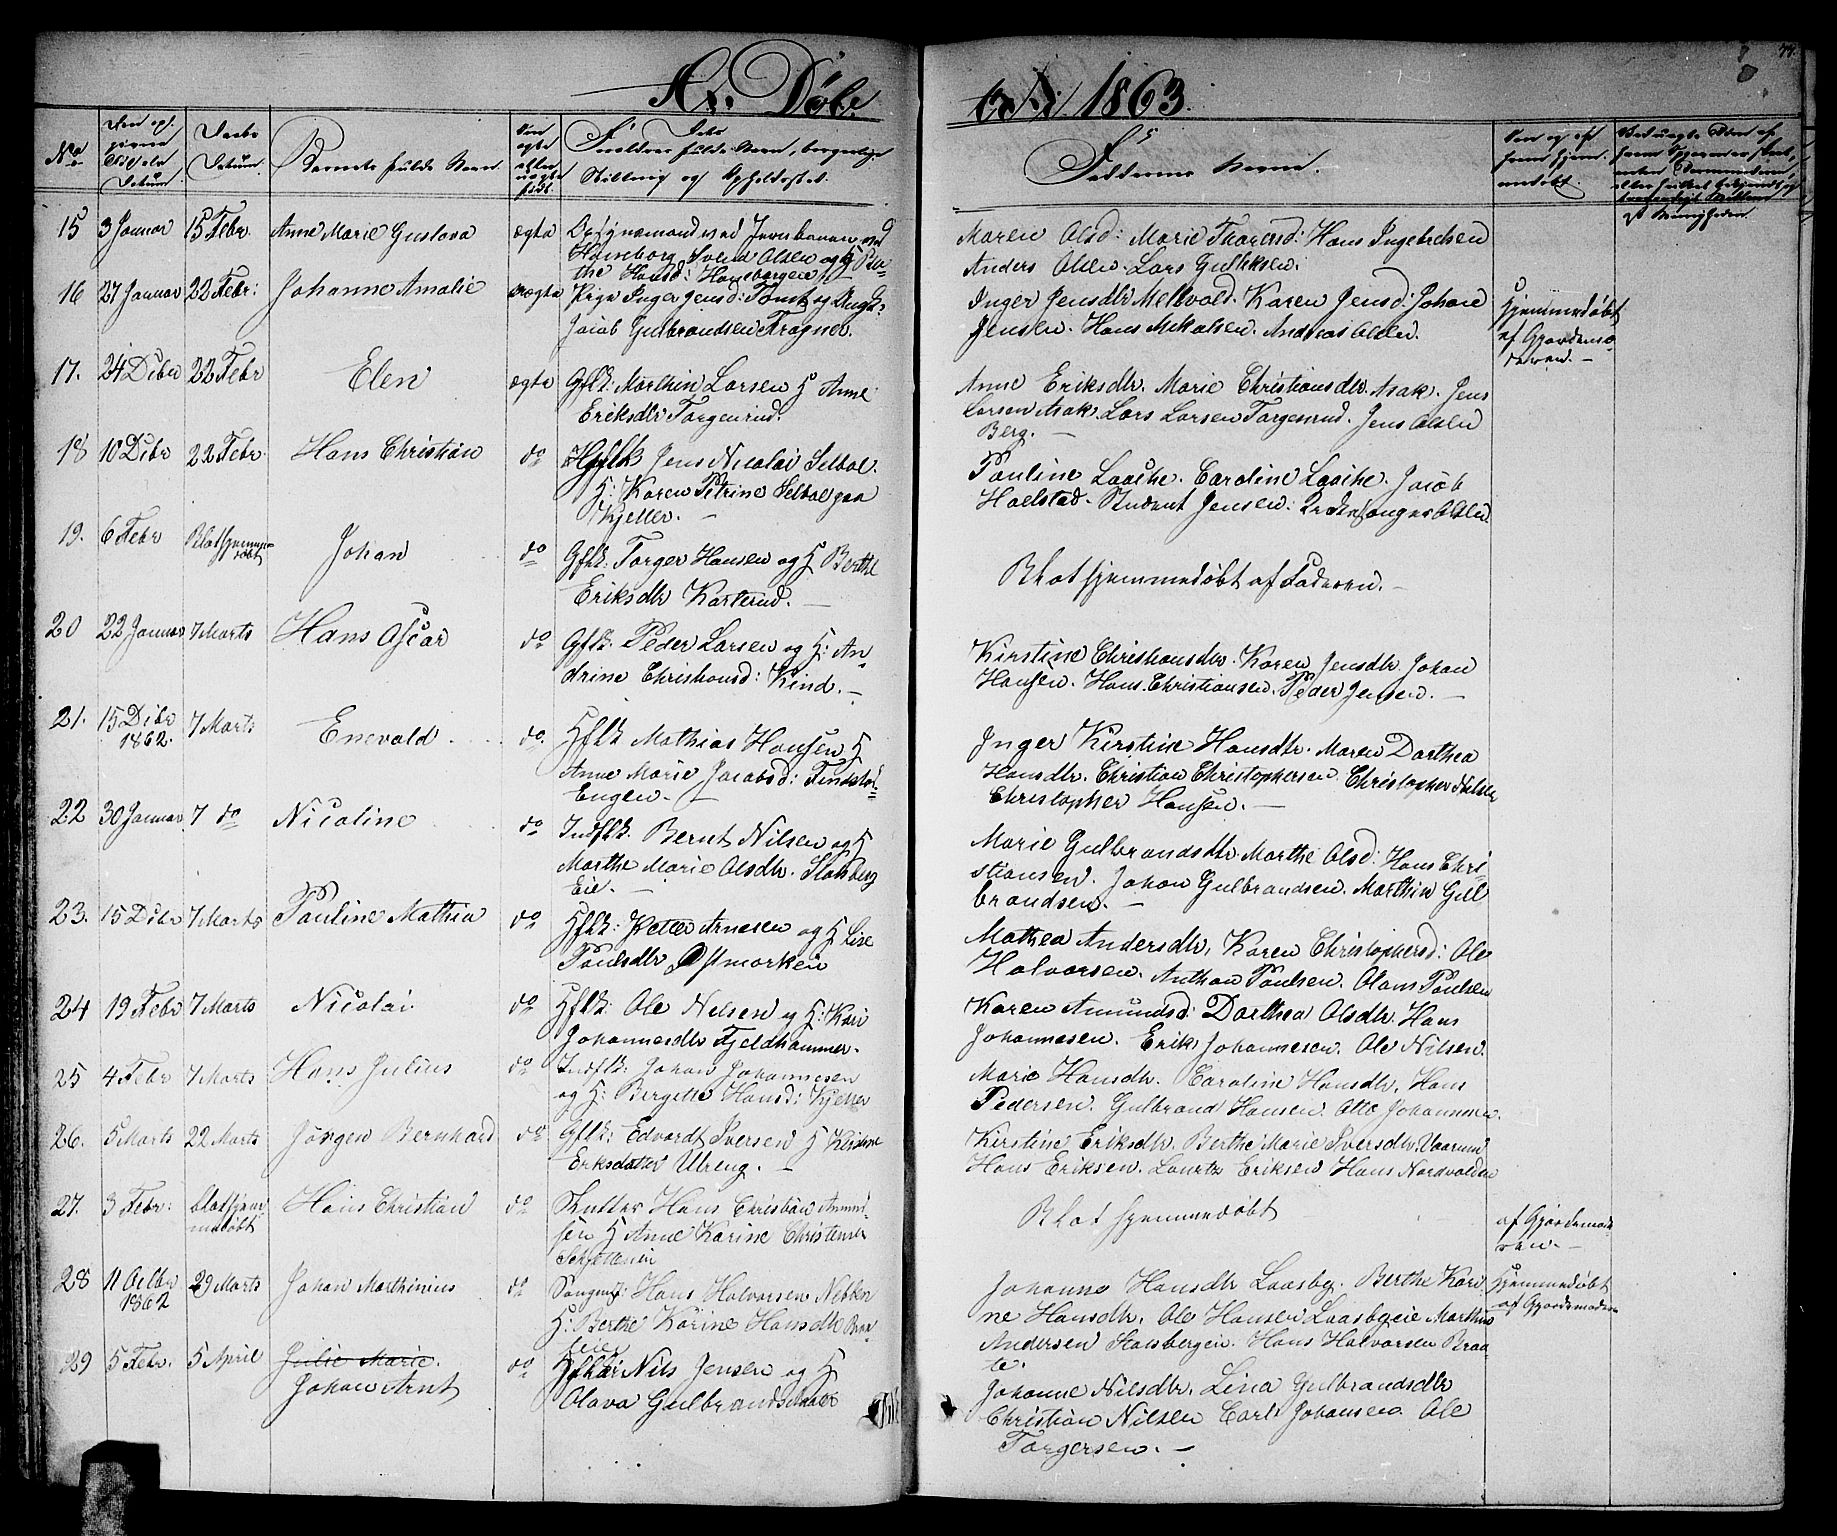 A. Døbte 1863.
No
Den opgivne Fødsels Datum.
Daabs Datum.
Barnets fulde Navn.
Om ægte eller uægte født.
Forældres fulde Navn, borgerlige Stilling og Opholdssted.
Faddernes Navne.
15 3 Januar 15 Febr. Anne Marie Gustava ægte Opsynsmand ved Jernbanen ved
Haneborg Svend Olsen og H Ber-
the Hansd: Haneborgeie
Maren Olsd: Marie Thorersd: Hans Ingebretsen
Anders Olsen. Lars Gulliksen.
16 27 Januar 22 Febr: Johanne Amalie uægte Pige Inger Jensd: Tomt og Ungk:
Jacob Gulbrandsen Frogner.
Inger Jensdtr Melvold. Karen Jensd: Johan
Jensen. Hans Mikalsen. Andreas Olsen.
Hjemmedøbt
af Gjordemo-
deren. -
17. 24 Dcbr 22 Febr Elen ægte Gflk: Marthin Larsen H Anne
Eriksdtr Torgenrud.
Anne Eriksdtr. Marie Christiansdtr. Asak. Jens
Larsen Asak. Lars Larsen Torgenrud. Jens Olsen
Berg. -
18 10 Dcbr 22 Febr. Hans Christian do Jens Nicolai Selboe.
H: Karen Petrine Selboe paa
Kjeller. -
Pauline Laache. Caroline Laache. Jacob
Holstad. Student Jensen. Kirkesanger Olsen
19. 6 Febr Blot hjemme-
døbt Johan do Gflk: Torger Hansen og H Berthe
Eriksdtr Karterud. -
Blot hjemmedøbt af Faderen. -
20 22 Januar 7 Marts Hans Oscar do Gflk. Peder Larsen og H: An-
drine Christiansd: Kind. -
Kirstine Christiansdtr. Karen Jensdtr Johan
Hansen. Hans Christiansen. Peder Jensen. -
21. 15 Dcbr
1862. 7 Marts Enevald do. Hflk Mathias Hansen H
Anne Marie Jacobsd: Findstad-
Engen. -
Inger Kirstine Hansdtr. Maren Dorthea
Hansdtr. Christian Christophersen. Christopher Nilsen
Christopher Hansen. -
22 30 Januar 7 do Nicoline do Indflk. Bernt Nilsen og H
Marthe Marie Olsdtr.
Eie. -
Marie Gulbrandsdtr. Marthe Olsd: Hans Chri-
stiansen. Johan Gulbrandsen. Marthin Gul
brandsen. -
23. 15 Dcbr 7 Marts Pauline Mathea do Hflk: Petter Arnesen og H Lise
Poulsdtr Østmorken
Mathea Andersdtr. Karen Christophersd: Ole
Halvorsen. Anthon Poulsen. Olans Poulsen
24 19 Febr 7 Marts Nicolai do Hflk: Ole Nilsen og H: Kari
Johannesdtr Fjeldhammer.
Karen Amundsd: Dorthea Olsdtr. Hans
Johannesen. Erik Johannesen. Ole Nilsen.
25 4 Febr 7 Marts Hans Julius do Indflk: Johan Johannesen
og H: Bergitte Hansd: Kjeller
Marie Hansdtr. Caroline Hansdtr. Hans
Pedersen. Gulbrand Hansen. Otto Johannesen.
26. 5 Marts 22 Marts Jørgen Bernhard do Gflk: Edvardt Iversen H Kirstine
Eriksdatter Ulreng. -
Kirstine Eriksdtr. Berthe Marie Iversdtr. Vaarum
Hans Eriksen. Lauritz Eriksen Hans Nordvolden
27. 3 Febr: Blot hjem-
medøbt Hans Christian do Hans Christian
H Anne Karine Christensen
Blot hjemmedøbt
af Gjordemode-
ren. -
28 11 Octbr
1862 29 Marts Johan Marthinius do Hans Halvorsen
H: Berthe Karine Hansdtr Braa-
teeie
Johanne Hansdtr Laasby. Berthe Kari-
ne Hansdtr. Ole Hansen Laasbyeie Marthin
Andersen Hans Halvorsen Braa-
te.
Hjemmedøbt
af Gjordemoderen
29 5 Febr. 5 April Julie Marie.
Johan Arnt do Nils Jensen og H
Olava Gulbrandsdatter
Johanne Nilsdtr. Lina Gulbrandsdtr
Christian Nilsen Carl Johansen. Ole
Torgersen. -